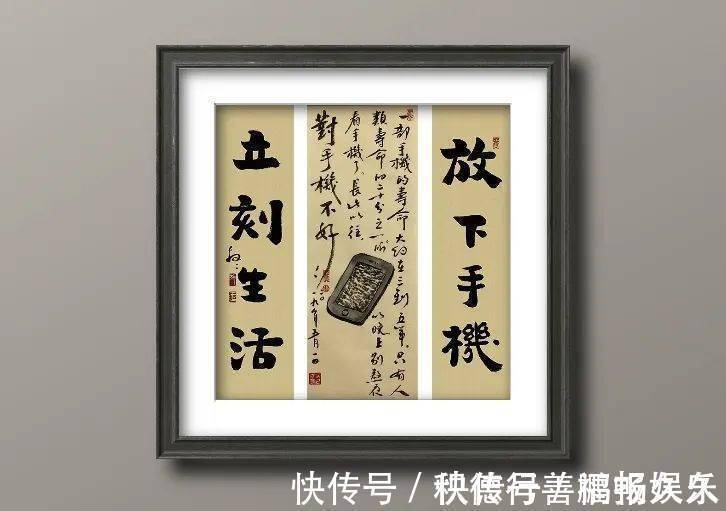 放下手機
一部手機的壽命大約在三到五年,只有人
類壽命的二十分之一,所以晚上別熬夜
看手機了,長此以往,
對手機不好
立刻生活
快传号/